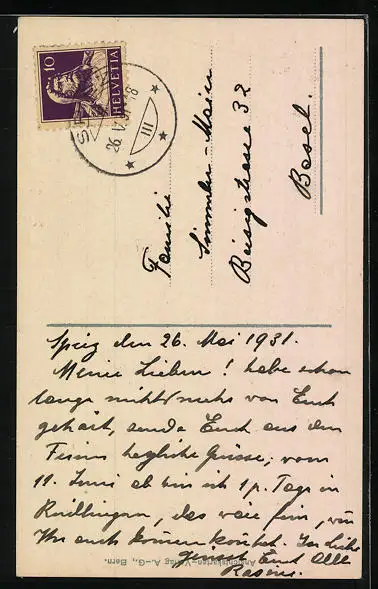 10
HELVETIA
26. V. 31. 18
III
Familie
Simmler-Maier
Basel
Spiez den 26. Mai 1931.
Meine Lieben! habe schon
lange nichts mehr von Euch
gehört, sende Euch aus den
Ferien herzliche Grüsse, vom
11. Juni ab bin ich Tage in
das wäre fein, wenn
Ihr auch kommen könntet. In Liebe
grüsst Euch Alle
Verlag A.-G., Bern.